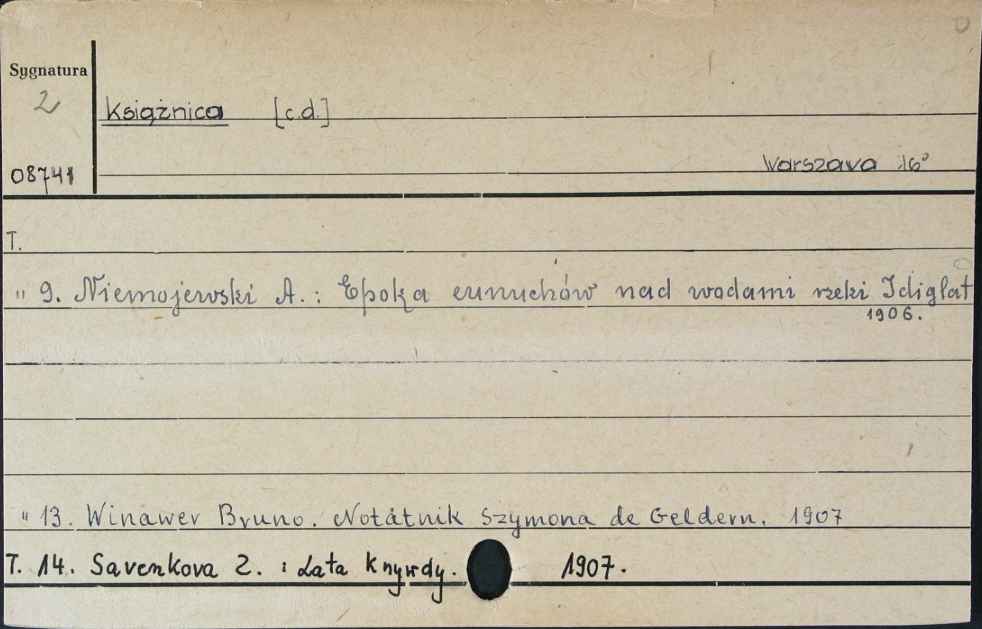 Sygnatura
2
Książnica [c.d.]
Warszawa 16°
08741
T.
" 9. Niemojewski A. : Epoka eunuchów nad wodami rzeki Idiglat
1906.
" 13. Winawer Bruno. Notatnik Szymona de Geldern. 1907
T. 14. Savenkova Z. : Lata Krzywdy. 1907.